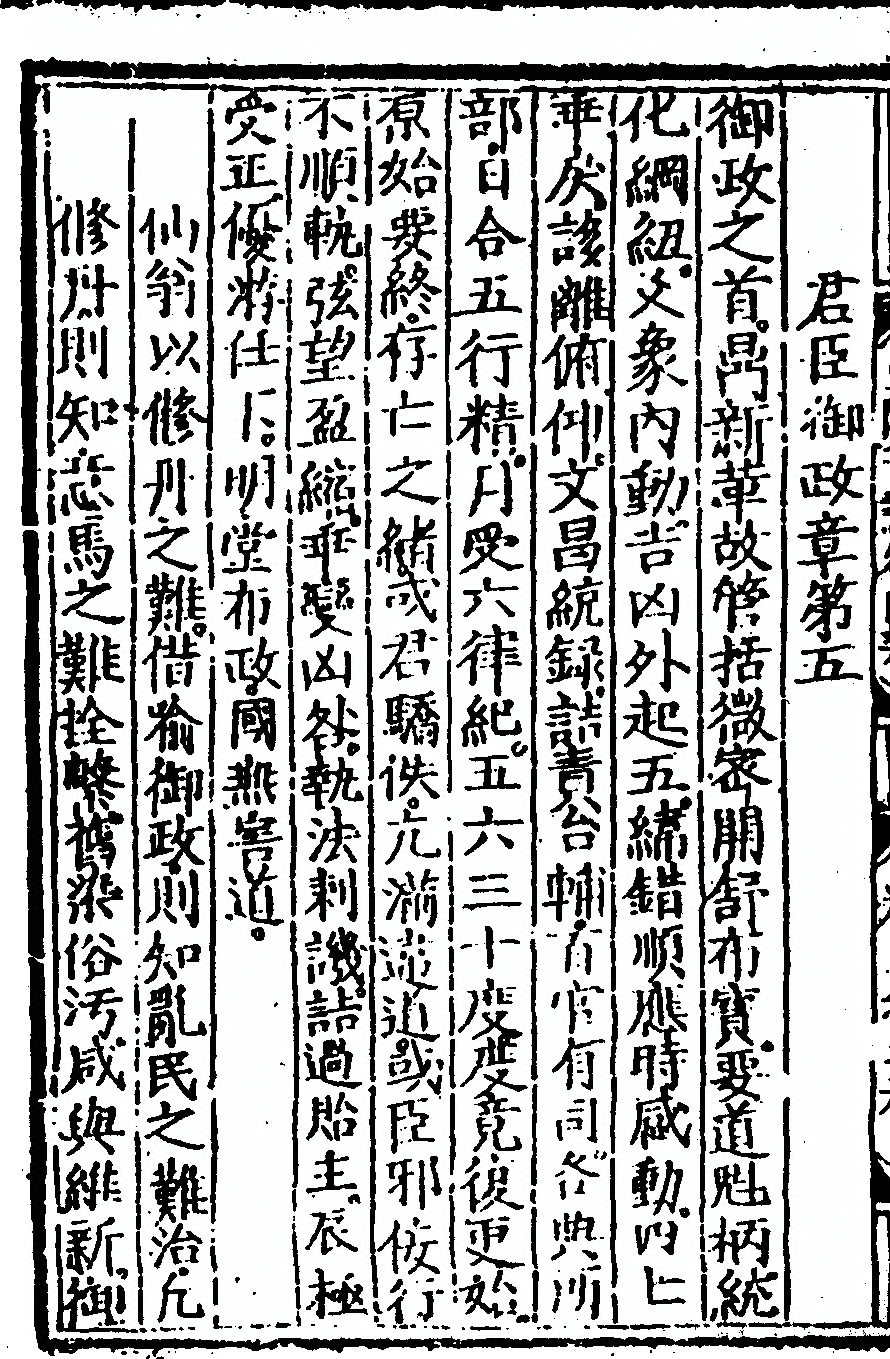 君臣御政章第五
御政之首鼎新革故管括微密開舒布寶要道魁柄統
化綱紐爻象內動吉凶外起五緯錯順應時感動四七
乖戾誃離俯仰文昌統録詰責台輔百官有司各典所
部日合五行精月受六律紀五六三十度度竟復更始
原始要終存亡之緒或君驕佚亢滿違道或臣邪佞行
不順軌弦望盈縮乖變凶咎執法刺譏詰過貽主辰極
受正優游任下明堂布政國無害道
仙翁以修丹之難借喻御政則知亂民之難治凡
修丹則知意馬之難拴繫舊染俗汚咸與維新御